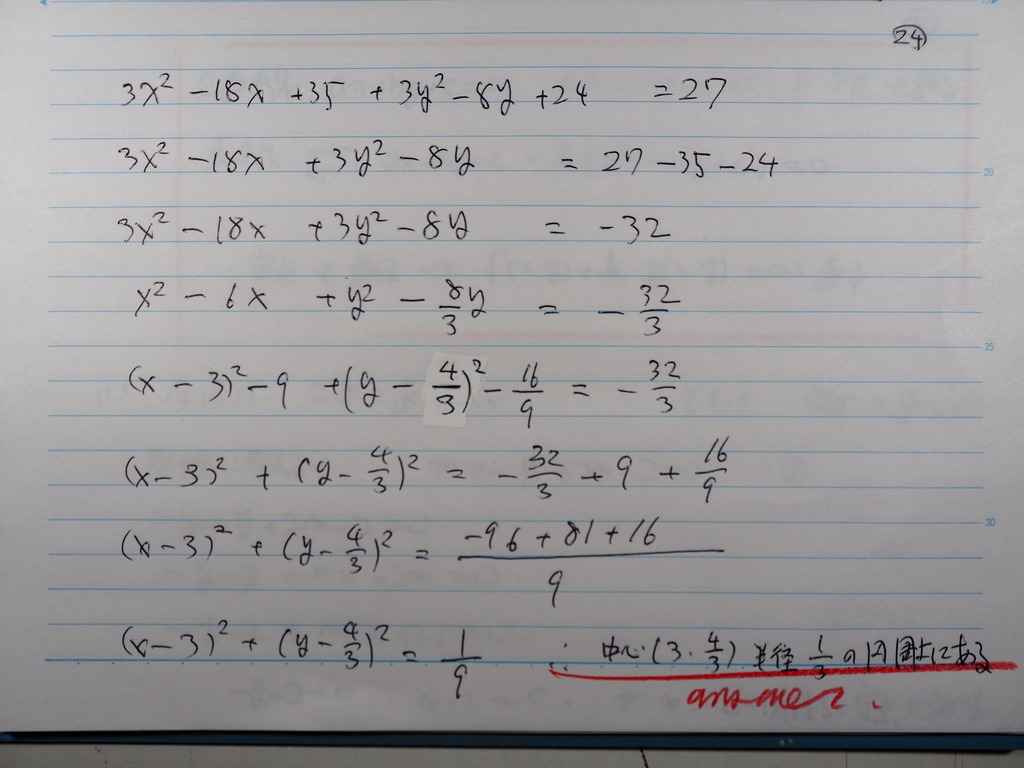 24
3x² - 18x + 35 + 3y² - 8y + 24 = 27
3x² - 18x + 3y² - 8y = 27 - 35 - 24
3x² - 18x + 3y² - 8y = -32
x² - 6x + y² - 8/3 y = - 32/3
(x - 3)² - 9 + (y - 4/3)² - 16/9 = - 32/3
(x - 3)² + (y - 4/3)² = - 32/3 + 9 + 16/9
(x - 3)² + (y - 4/3)² = (-96 + 81 + 16)/9
(x - 3)² + (y - 4/3)² = 1/9 ∴ 中心(3. 4/3) 半径 1/3 の円周上にある
answer.
20
25
30